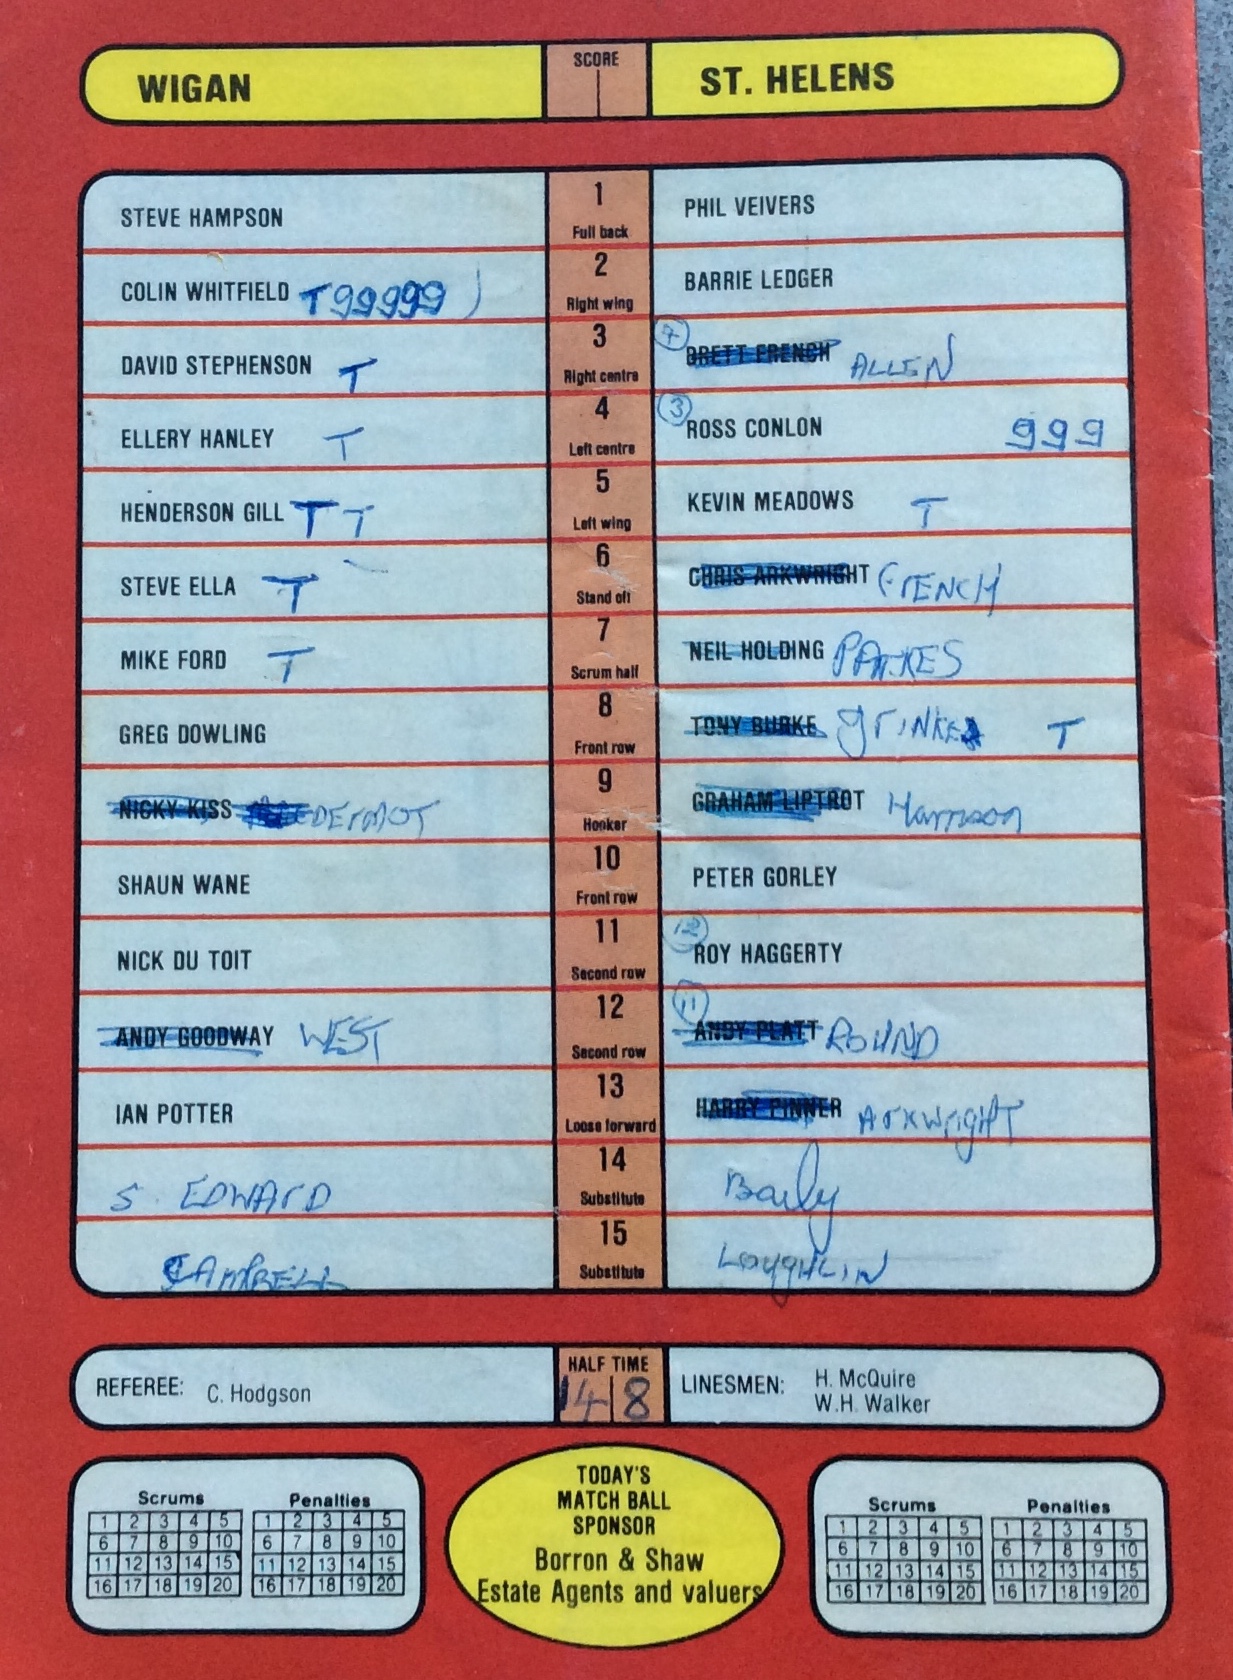 WIGAN SCORE ST. HELENS
STEVE HAMPSON 1 Full back PHIL VEIVERS
COLIN WHITFIELD T99999 ) 2 Right wing BARRIE LEDGER
DAVID STEPHENSON T 3 Right centre 7 BRETT FRENCH ALLEN
ELLERY HANLEY T 4 Left centre 3 ROSS CONLON 999
HENDERSON GILL T T 5 Left wing KEVIN MEADOWS T
STEVE ELLA T 6 Stand off CHRIS ARKWRIGHT FrENCH
MIKE FORD T 7 Scrum half NEIL HOLDING PArKES
GREG DOWLING 8 Front row TONY BURKE T
NICKY KISS DERMOT 9 Hooker GRAHAM LIPTROT Harrison
SHAUN WANE 10 Front row PETER GORLEY
NICK DU TOIT 11 Second row 12 ROY HAGGERTY
ANDY GOODWAY WEST 12 Second row 11 ANDY PLATT ROUND
IAN POTTER 13 Loose forward HARRY PINNER ArKwrigHT
S. EDWArD 14 Substitute Baily
CAMPBELL 15 Substitute LOugHLIN
REFEREE: C. Hodgson
HALF TIME
14 8
LINESMEN: H. McQuire
W.H. Walker
Scrums
1 2 3 4 5
6 7 8 9 10
11 12 13 14 15
16 17 18 19 20
Penalties
1 2 3 4 5
6 7 8 9 10
11 12 13 14 15
16 17 18 19 20
TODAY'S
MATCH BALL
SPONSOR
Borron & Shaw
Estate Agents and valuers
Scrums
1 2 3 4 5
6 7 8 9 10
11 12 13 14 15
16 17 18 19 20
Penalties
1 2 3 4 5
6 7 8 9 10
11 12 13 14 15
16 17 18 19 20